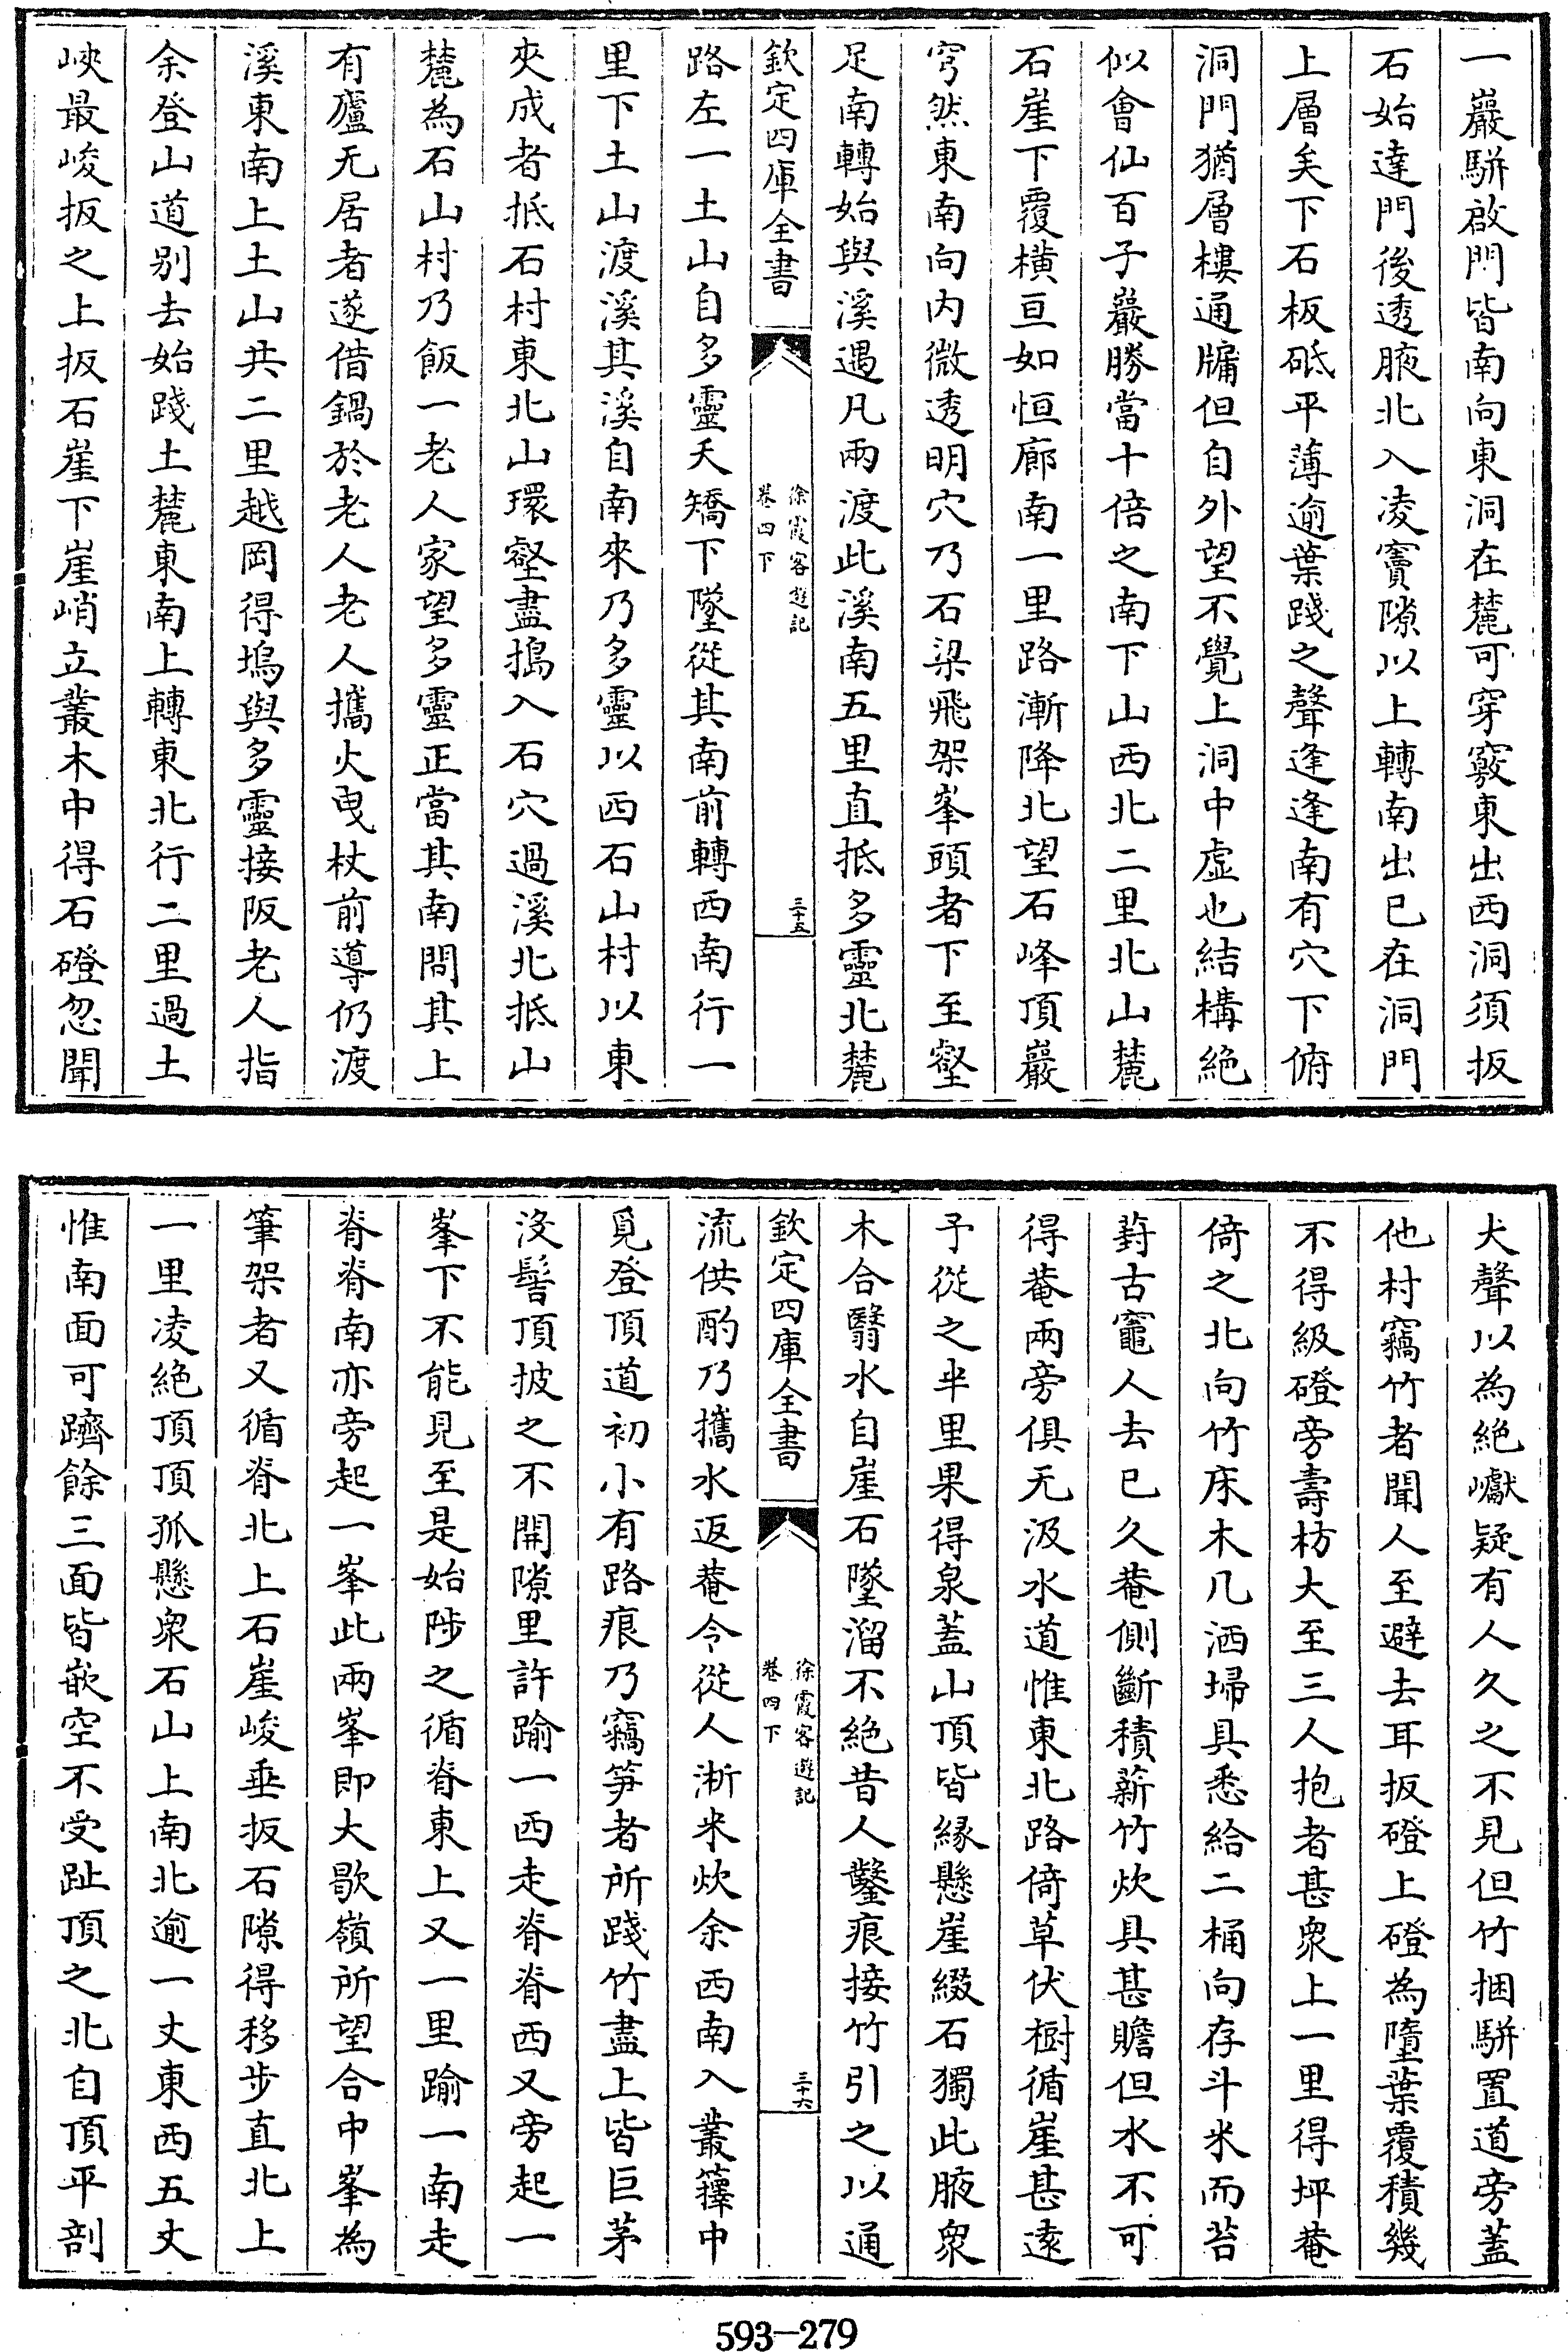 一巖駢啟門皆南向東洞在麓可穿竅東出西洞須扳
石始達門後透腋北入凌竇隙以上轉南出已在洞門
上層矣下石板砥平薄逾葉踐之聲逢逢南有穴下俯
洞門猶層樓通牖但自外望不覺上洞中虛也結構絶
似會仙百子巖勝當十倍之南下山西北二里北山麓
石崖下覆橫亘如恒廊南一里路漸降北望石峰頂巖
穹然東南向内微透明穴乃石梁飛架峯頭者下至壑
足南轉始與溪遇凡兩渡此溪南五里直抵多靈北麓
欽定四庫全書
徐霞客遊記
卷四下
三十五
路左一土山自多靈夭矯下墜從其南前轉西南行一
里下土山渡溪其溪自南來乃多靈以西石山村以東
夾成者抵石村東北山環壑盡搗入石穴過溪北抵山
麓為石山村乃飯一老人家望多靈正當其南問其上
有廬无居者遂借鍋於老人老人攜火曳杖前導仍渡
溪東南上土山共二里越岡得塢與多靈接阪老人指
余登山道别去始踐土麓東南上轉東北行二里過土
峽最峻扳之上扳石崖下崖峭立叢木中得石磴忽聞
犬聲以為絶巘疑有人久之不見但竹捆駢置道旁蓋
他村竊竹者聞人至避去耳扳磴上磴為墮葉覆積幾
不得級磴旁壽枋大至三人抱者甚衆上一里得坪菴
倚之北向竹床木几洒掃具悉給二桶向存斗米而苔
葑古竈人去已久菴側斷積薪竹炊具甚贍但水不可
得菴兩旁俱无汲水道惟東北路倚草伏樹循崖甚遠
予從之半里果得泉蓋山頂皆緣懸崖綴石獨此腋衆
木合翳水自崖石墜溜不絶昔人鑿痕接竹引之以通
欽定四庫全書
徐霞客遊記
卷四下
三十六
流供酌乃攜水返菴令從人淅米炊余西南入叢籜中
覓登頂道初小有路痕乃竊笋者所踐竹盡上皆巨茅
沒髻頂披之不開隙里許踰一西走脊脊西又旁起一
峯下不能見至是始陟之循脊東上又一里踰一南走
脊脊南亦旁起一峯此兩峯即大歇嶺所望合中峯為
筆架者又循脊北上石崖峻垂扳石隙得移步直北上
一里凌絶頂頂孤懸衆石山上南北逾一丈東西五丈
惟南面可躋餘三面皆嵌空不受趾頂之北自頂平剖
593—279